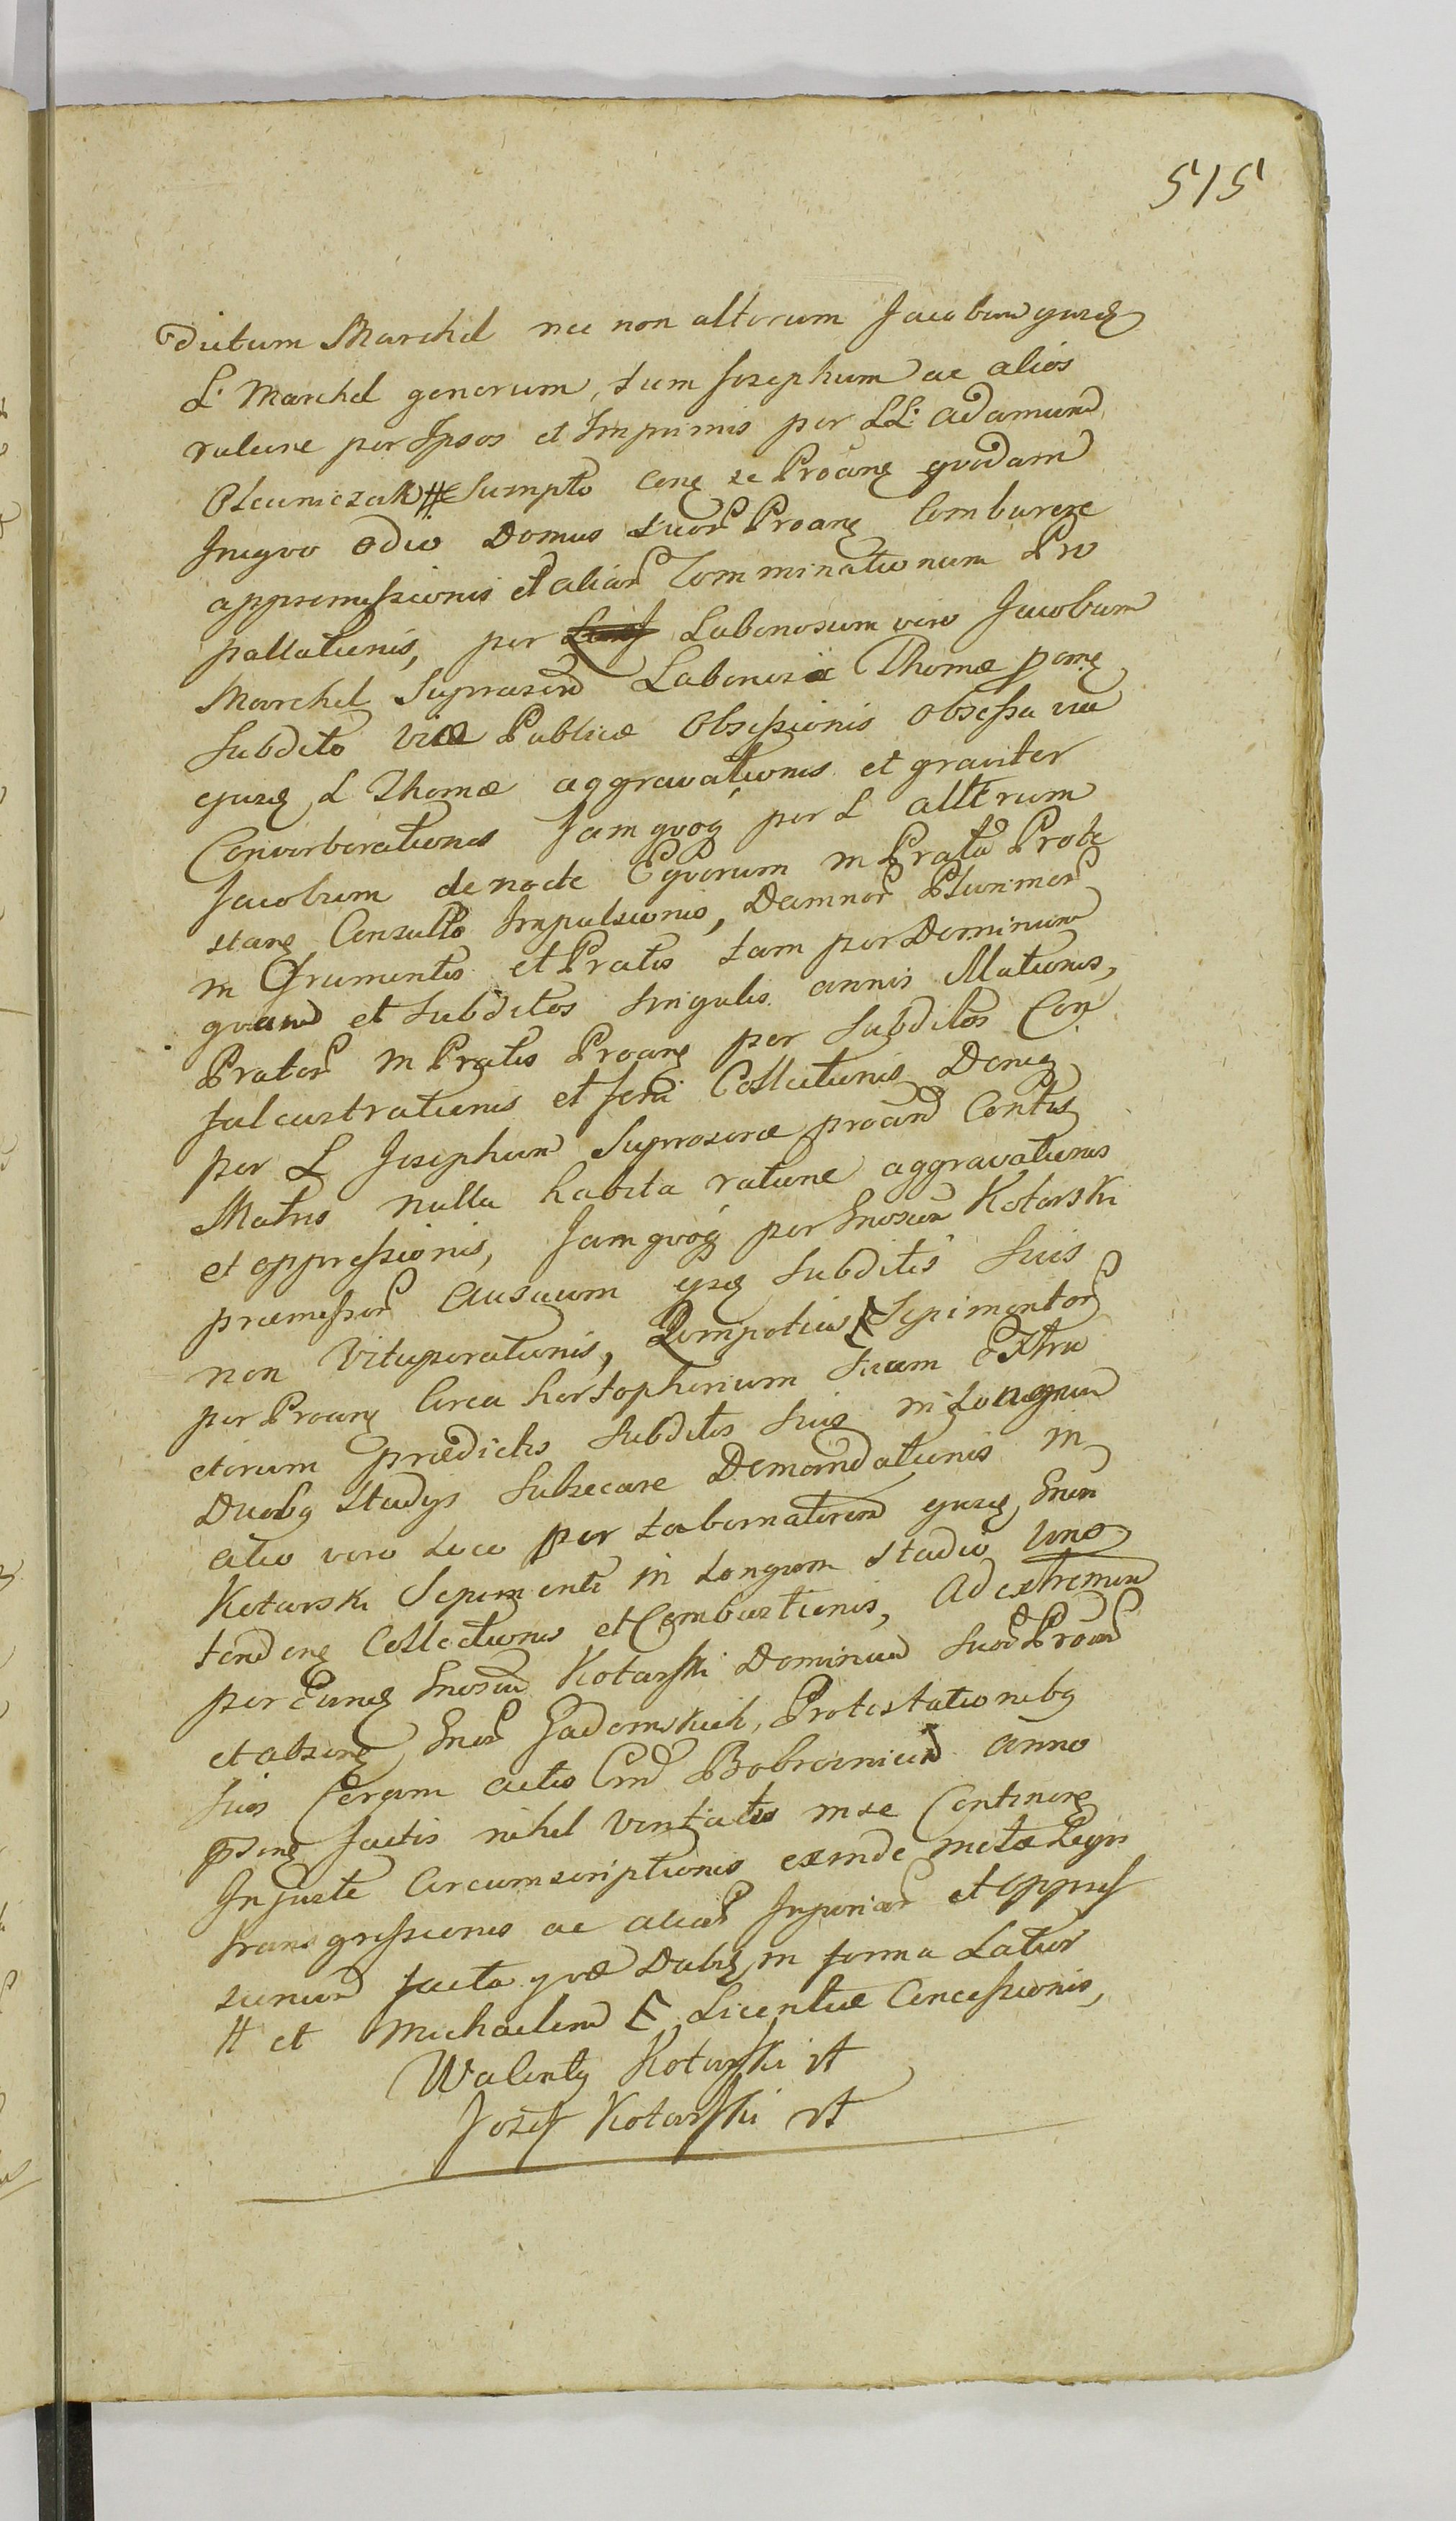 515
dictum Marchel nec non alterum Jacobum ejusq
L. Marchel generum, tum Josephum ac alios
ratione per Ipsos et Imprimis per LL: Adamum
Olcuniczak # Sumpto conq se Proanq quodam
Iniquo odio Domus suor Proanq Comburere
appromissionis et aliar Comminationum Pro
pallationis, per Laboriosum vero Jacobum
Marchel Suprascrd Laboriosi Thomæ pomq
Subdito Viæ Publicæ Obsessionis obsessa via
ejusq L Thomæ aggravationis et graviter
Converberationis Jam quoq per L alterum
Jacobum de nocte Equorum in Prata Prote
stanq Consulto Impulsionis, Damnor Plurimor
in Frumentis et Pratis tam per Dominum
quam et Subditos Singulis annis Illationis,
Prator in Pratis Proanq per Subditos Con
falcastrationis et feni Collectionis Deniq
per L Josephum Suprascræ proand Contis
Matris nulla habita ratione aggravationis
et oppressionis, Jam quoq per Gnosum Kotarski
præmissor Ausuum ejsq Subditis Suis
non Vituperationis, Quinpotius E Sepimentor
per Proanq Circa hortopherium Suum Extru
ctorum prædictis Subditis Suis in Longum
Duobq Stadys Subsecare Demandationis in
alio vero Loco per tabernatorem ejusq Gnsi
Kotarski Sepimenti in Longum Stadio Uno
tendenq Collectionis et Combustionis, Ad extremum
per Eunq Gnosum Kotarski Dominum Suor Proand
et absenq Gnor Gadomskich, Protestationibq
Suis Coram actis Cnd Bobrovnicen anno
psenq factis nihil Veritatis in se Continenq
Injuste Circumscriptionis exinde metæ Legis
transgressionis ac aliar Injuriar et oppres
sionum facta quæ Dabiq in forma Latior
# et Michaelem E Licentiæ Concessionis,
Walenty Kotarski
Jozef Kotarski